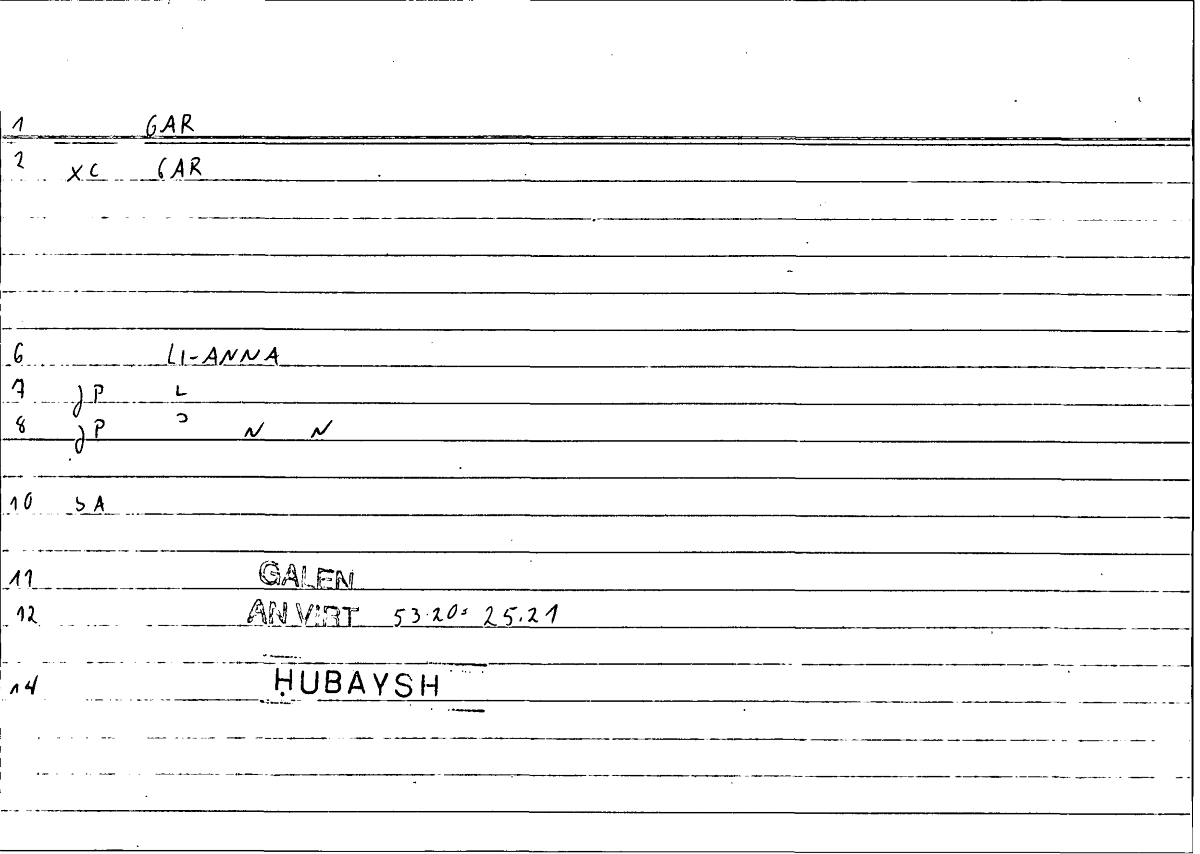 1 GAR
2 XC GAR
6 LI-ANNA
7 JP L
8 JP Ɔ N N
10 SA
11 GALEN
12 AN VIRT 53.20: 25.21
14 ḤUBAYSH